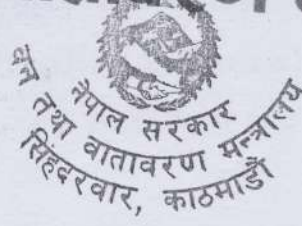 नेपाल सरकार
वन तथा वातावरण मन्त्रालय
सिंहदरवार, काठमाडौं